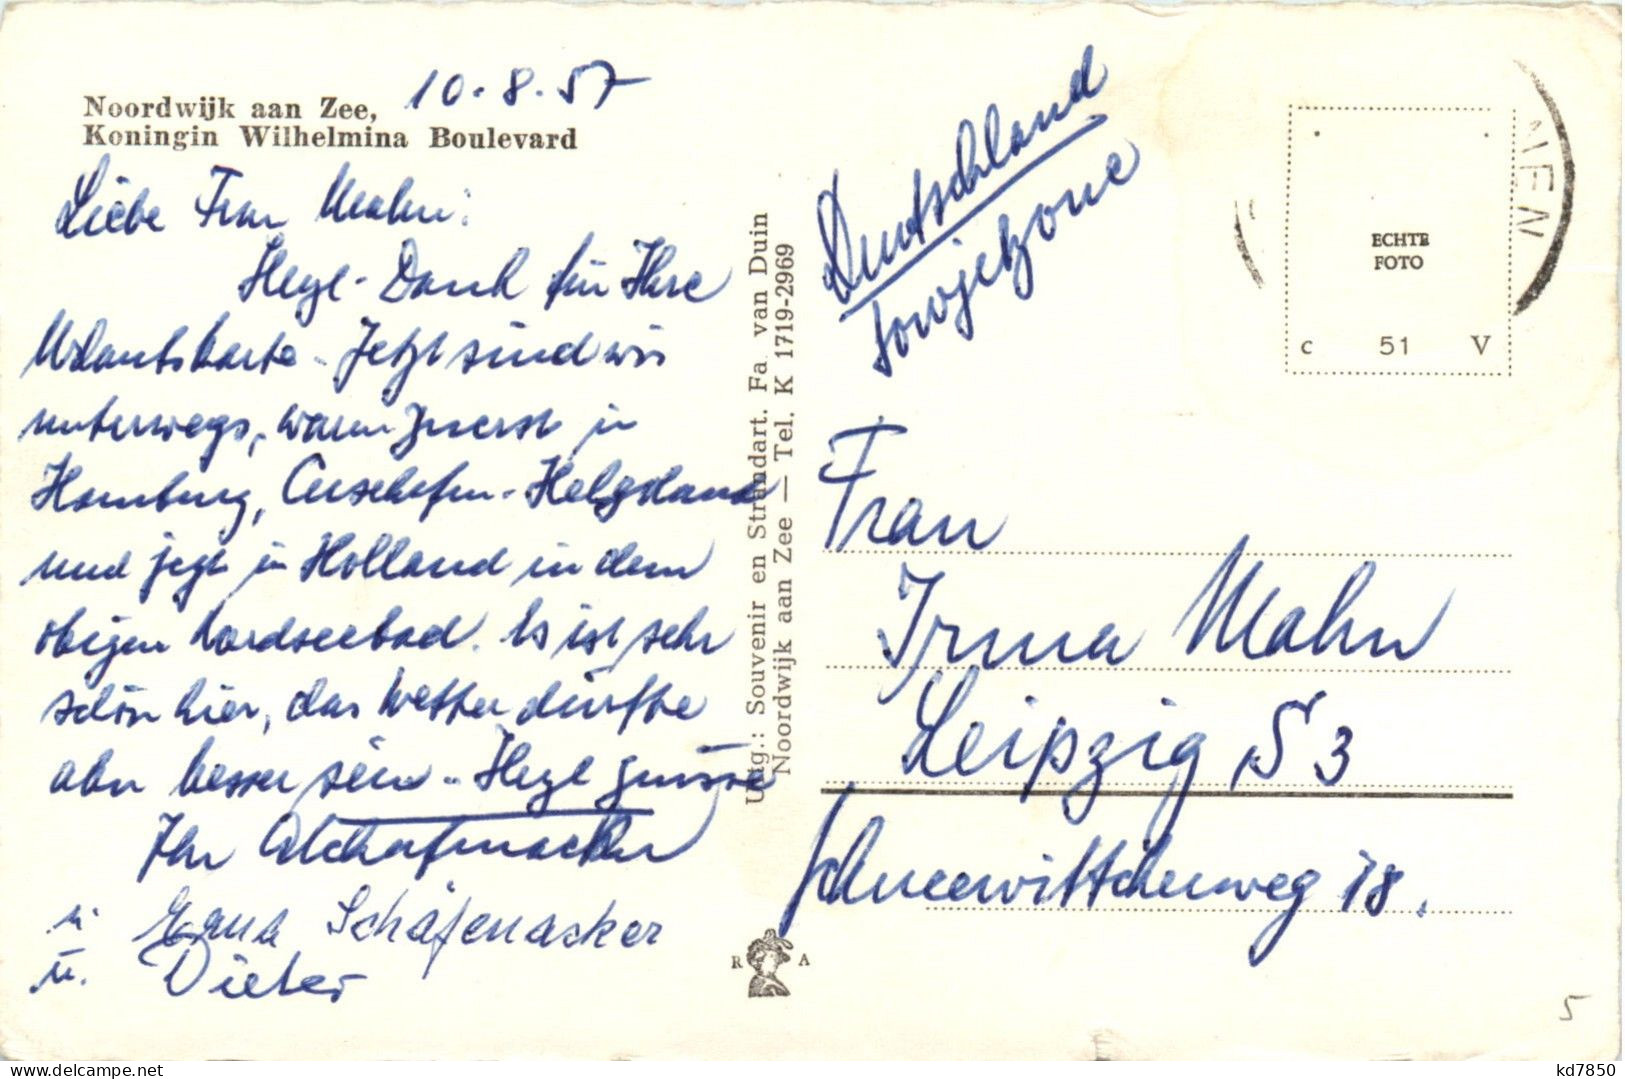 Noordwijk aan Zee, 10.8.57
Koningin Wilhelmina Boulevard
Liebe Frau Mahn:
Herzl. Dank für Ihre
Urlaubskarte. Jetzt sind wir
unterwegs, waren zuerst in
Hamburg, Cuxhafen - Helgoland
und jetzt in Holland in dem
obigen Nordseebad. Es ist sehr
schön hier, das Wetter dürfte
aber besser sein. Herzl Grüsse
Ihr
u. Schäfenacker
u. Dieter
Uitg.: Souvenir en Strandart. Fa. van Duin
Noordwijk aan Zee — Tel. K 1719-2969
R A
Deutschland
Sowjetzone
MEN
ECHTE
FOTO
C 51 V
Frau
Irma Mahn
Leipzig S 3
Schneewittchenweg 18.
5
kd7850